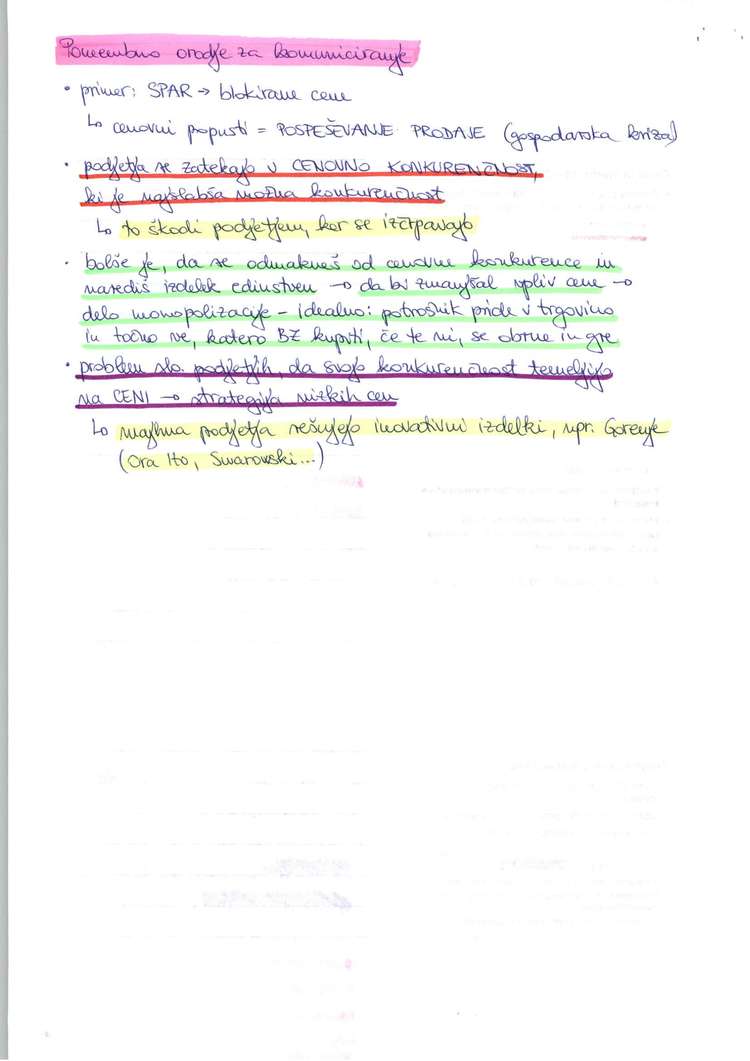 Pomembno orodje za komuniciranje
• primer: SPAR → blokirane cene
↳ cenovni popusti = POSPEŠEVANJE PRODAJE (gospodarska kriza)
• podjetja se zatekajo v CENOVNO KONKURENČNOST,
ki je najslabša možna konkurenčnost
↳ to škodi podjetjem, ker se izčrpavajo
• bolše je, da se odmakneš od cenovne konkurence in
narediš izdelek edinstven → da bi zmanjšal vpliv cene →
delo monopolizacije – idealno: potrošnik pride v trgovino
in točno ve, katero BZ kupiti, če te ni, se obrne in gre
• problem slo. podjetjih, da svojo konkurenčnost temeljijo
na CENI → strategija nizkih cen
↳ majhna podjetja rešujejo inovativni izdelki, npr. Gorenje
(Ora Ito, Swarowski...)